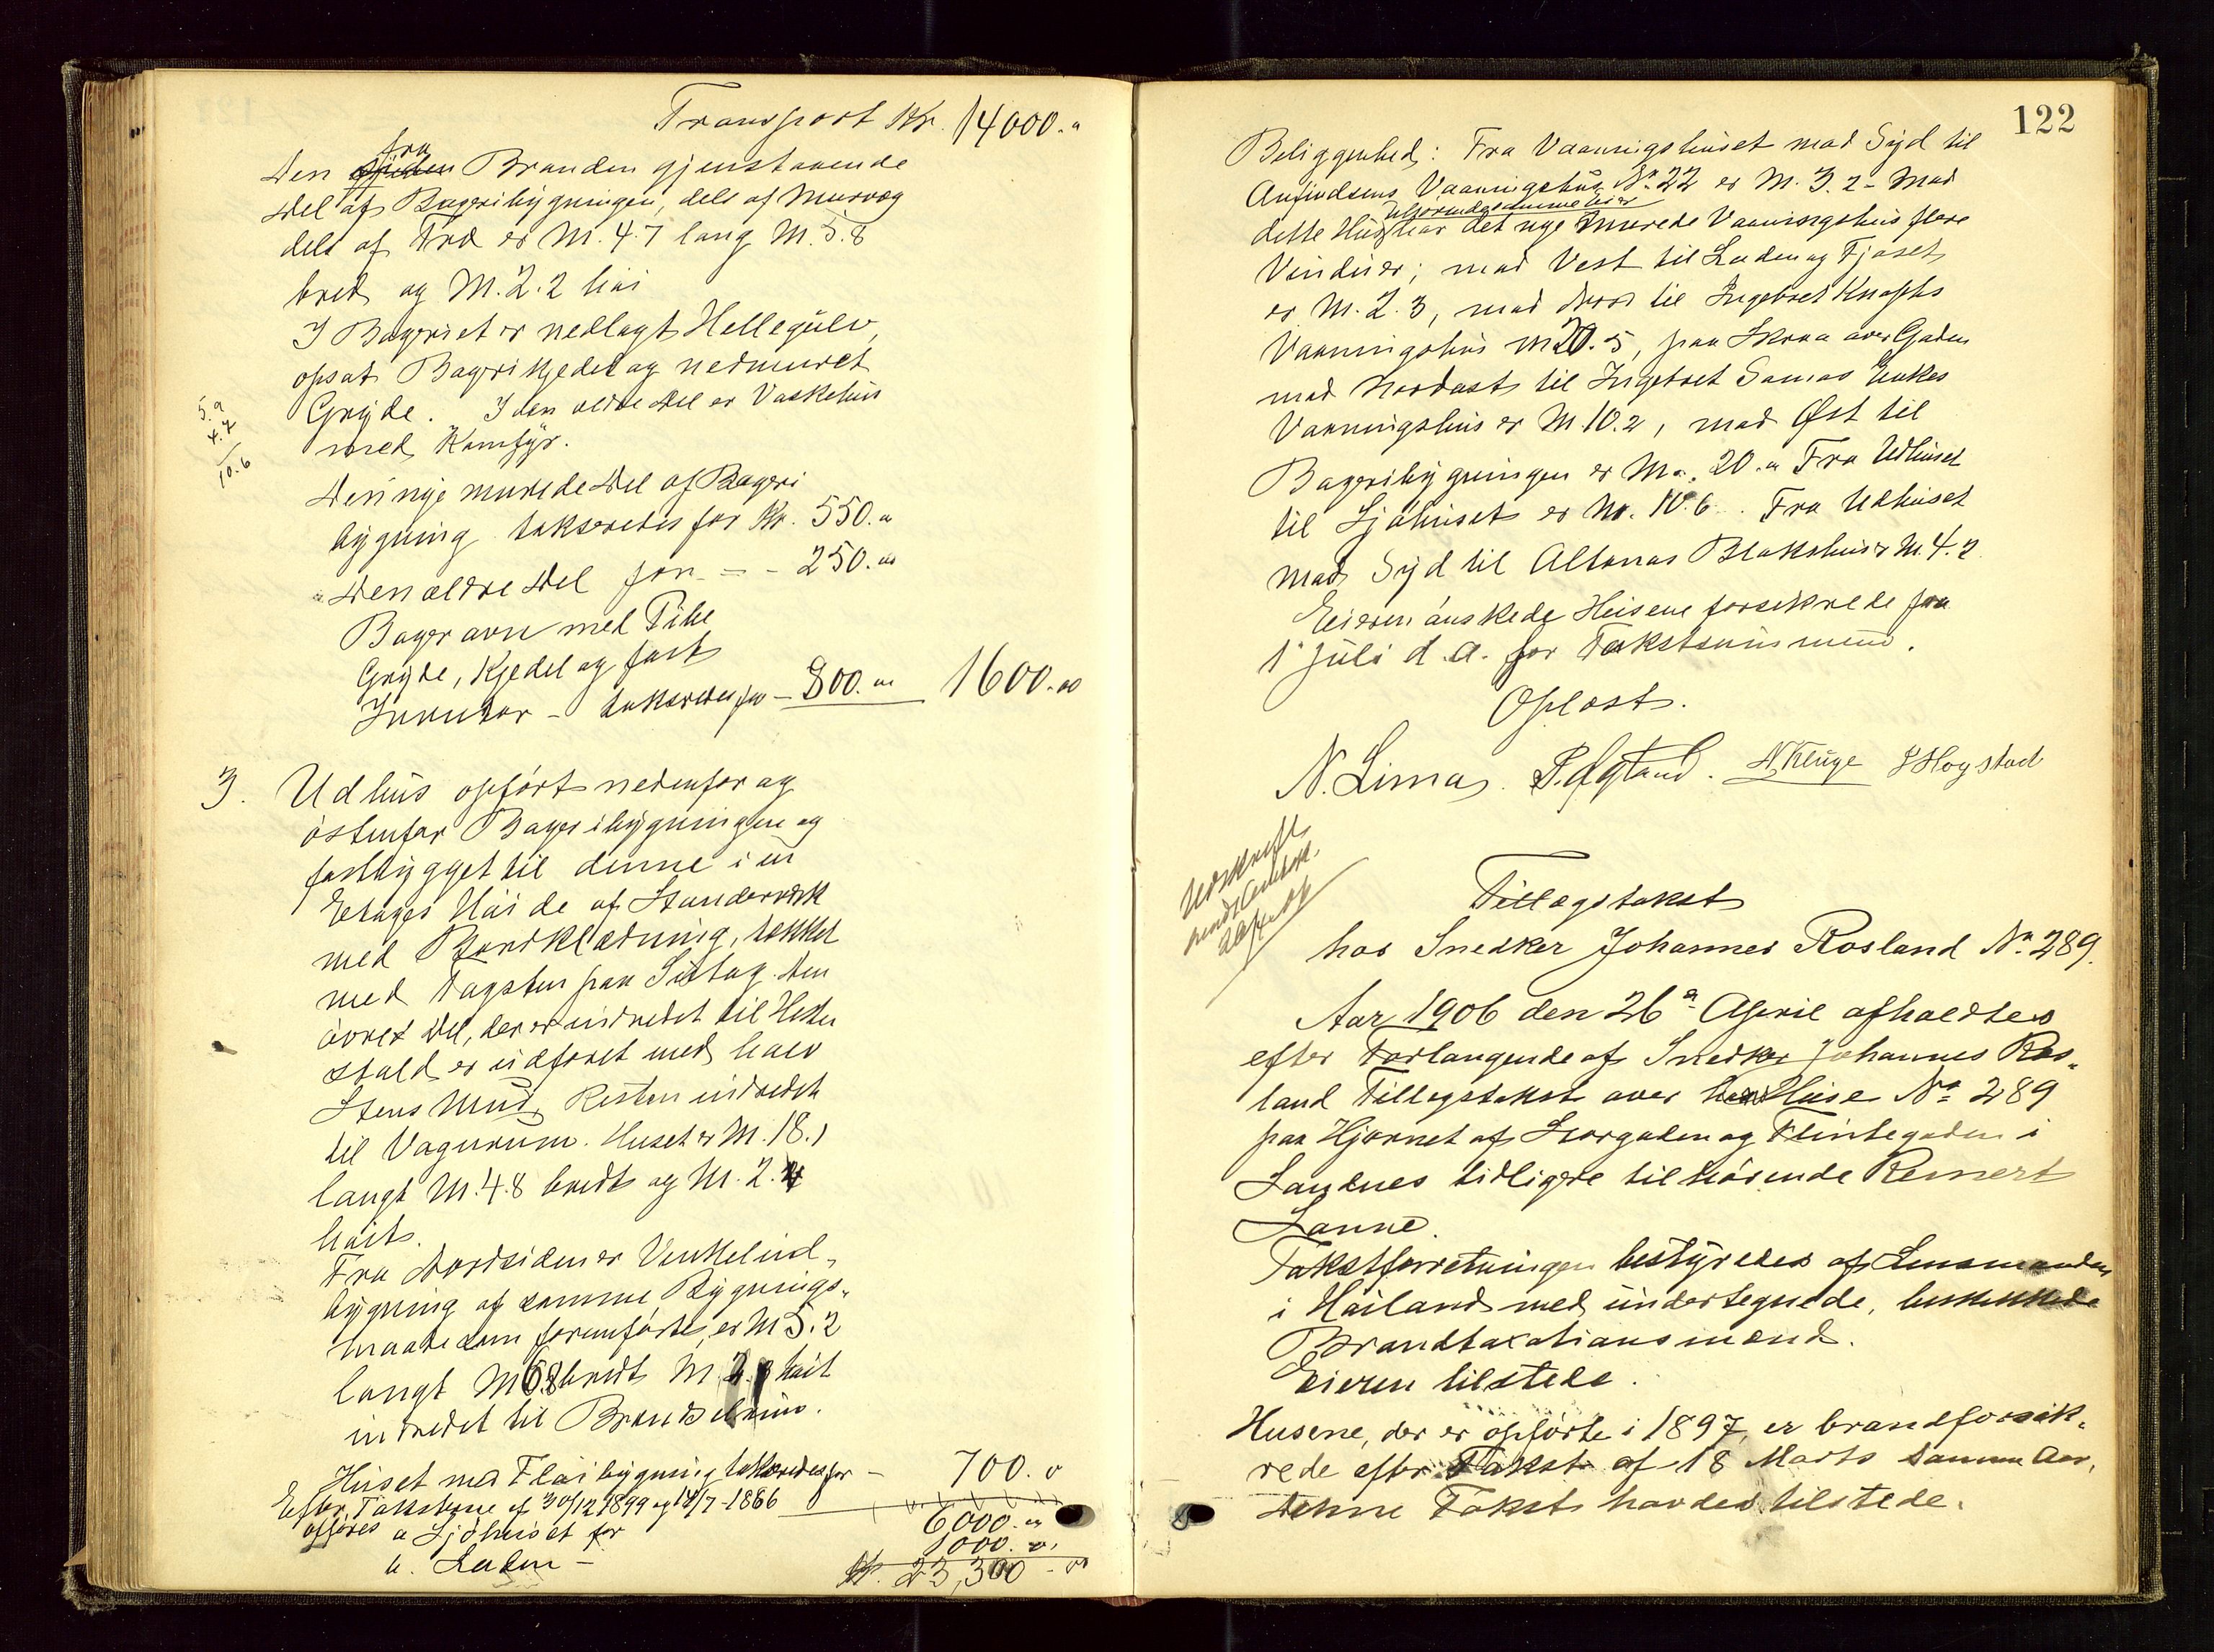 Transport Kr. 14000."
fra
Den Branden gjenstaaende
Del af Bageribygningen, dels af Murvæg
dels af Træ er M. 4.7 lang M. 5.8
bred og M. 2.2 høi
I Bageriet er nedlagt Hellegulv,
opsat Bagerikjedel og nedmuret
Gryde. I den ældre Del er Vaskehus
med Komfyr.
5.9
4.7
10.6
Den nye murede Del af Bageri
bygning takseredes for Kr. 550."
Den ældre Del for - - 250."
Bagerovn med Pibe
Gryde, Kjedel og fast
Inventar - takseredes for - 800." 1600.00
3. Udhus opført nedenfor og
østenfor Bageribygningen og
fastbygget til denne i en
Etages Høide af Standerverk
med Bordklædning, tækket
med Tagsten paa Sutag. Den
øvre Del, der er indredet til Heste
stald er udforet med halv
Stens Mur, Resten indredet
til Vognrum. Huset er M. 18.1
langt M. 4.8 bredt og M. 2.4
høit.
Fra Nordsiden er Vinkelind-
bygning af samme Bygnings-
maade som foranførte, er M 5.2
langt M 6.8 bredt M. høit
indredet til
Huset med Fløibygning takseredes for - 700. 0
Efter Taksterne af 30/12 1899 og 14/7-1886
opføres a Sjøhuset for 6000."
b. Laden - 1000. "
Kr. 23,300 - 00
122
Beliggenhed: Fra Vaaningshuset mod Syd til
Anfindsens Vaaningshus No 22 er M. 3.2 - Mod
tilhørende samme Eier
dette Hus har det nye murede Vaaningshus flere
Vinduer; mod Vest til Laden og Fjøset
er M. 2.3, mod Nord til Ingebret Knaphs
Vaaningshus M 20.5, paa Skraa over Gaden
mod Nordost til Ingebret Somas Enkes
Vaaningshus er M 10.2, mod Øst til
Bageribygningen er M. 20." Fra Udhuset
til Sjøhuset er M. 10.6. Fra Udhuset
mod Syd til Altonas Blokhus er M. 4.2.
Eieren ønskede Husene forsikrede fra
1" Juli d. A. for Takstsummene.
Oplæst.
N. Lima. P. Ogland. N. Kluge S Høystad
Udskrift
Tillægstakst
hos Snedker Johannes Rosland No 289.
Aar 1906 den 26de April afholdtes
efter Forlangende af Snedker Johannes Ros-
land Tillægstakst over hans Huse No 289
paa Hjørnet af Storgaden og Flintegaden i
Sandnes tidligere tilhørende Reinert
Sanne.
Takstforretningen bestyredes af Lensmanden
i Høiland med undertegnede, beskikkede
Brandtaxationsmænd.
Eieren tilstede.
Husene, der er opførte i 1897, er brandforsik-
rede efter Takst af 18 Marts samme Aar,
denne Takst havdes tilstede.